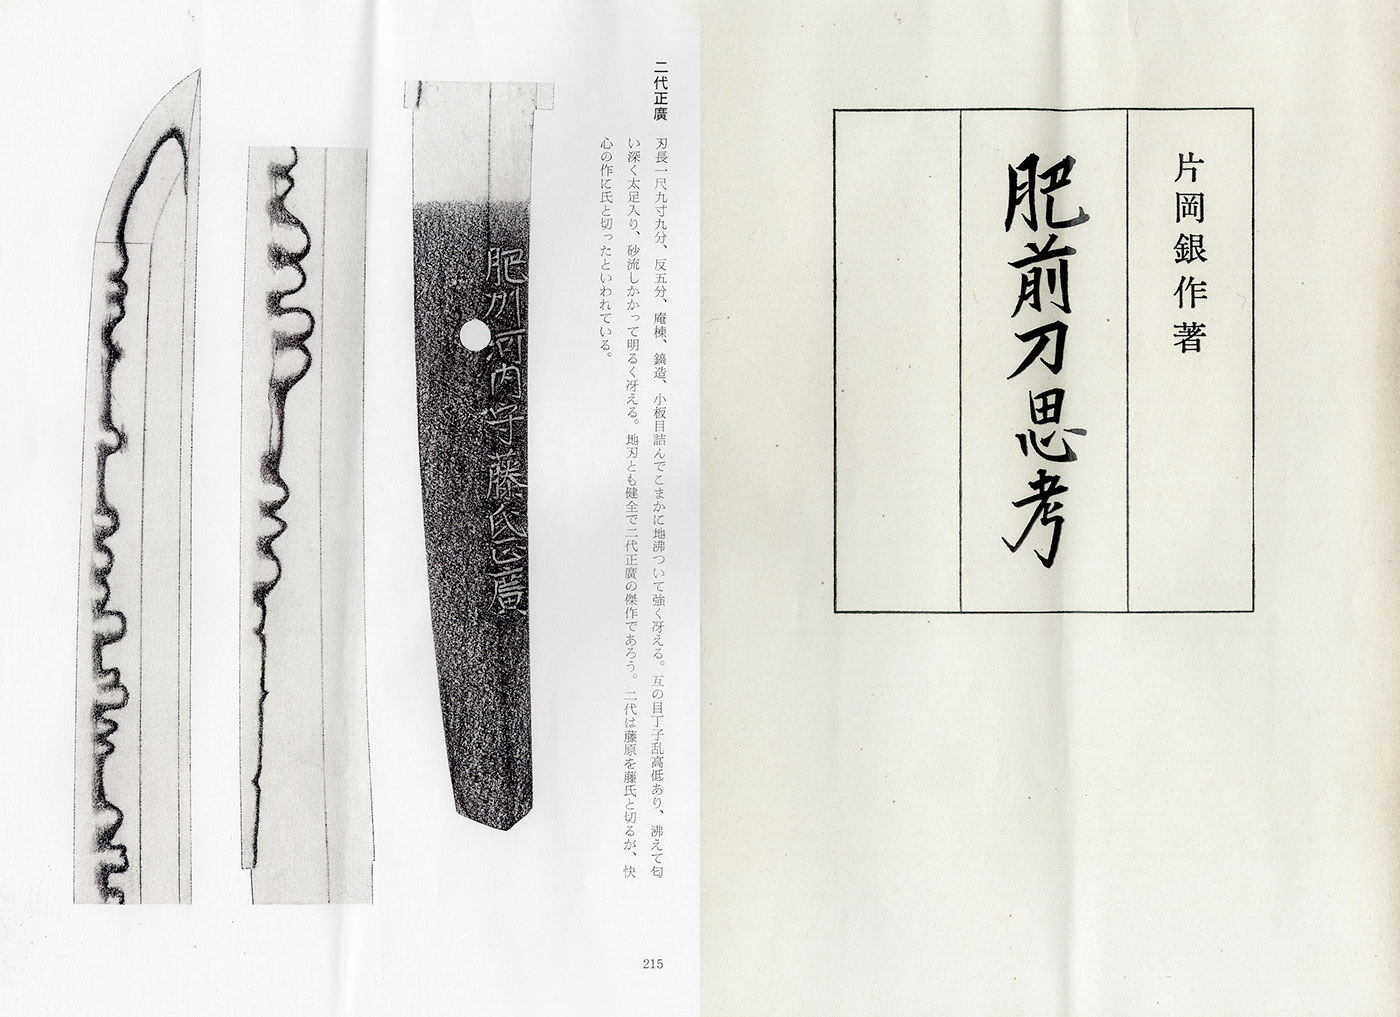 片岡銀作著
肥前刀思考
二代正廣
刃長一尺九寸九分、反五分、庵棟、鎬造、小板目詰んでこまかに地沸ついて強く冴える。互の目丁子乱高低あり、沸えて匂
い深く太足入り、砂流しかかって明るく冴える。地刃とも健全で二代正廣の傑作であろう。二代は藤原を藤氏と切るが、快
心の作に氏と切ったといわれている。
肥州河内守藤氏正廣
215